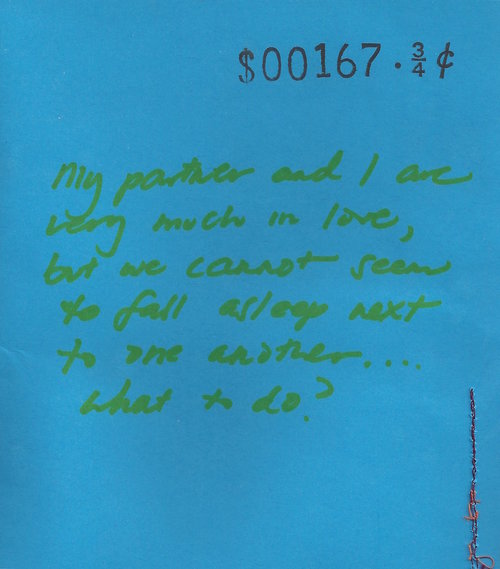 $00167 · ¾ ¢
My partner and I are
very much in love,
but we cannot seem
to fall asleep next
to one another....
what to do?